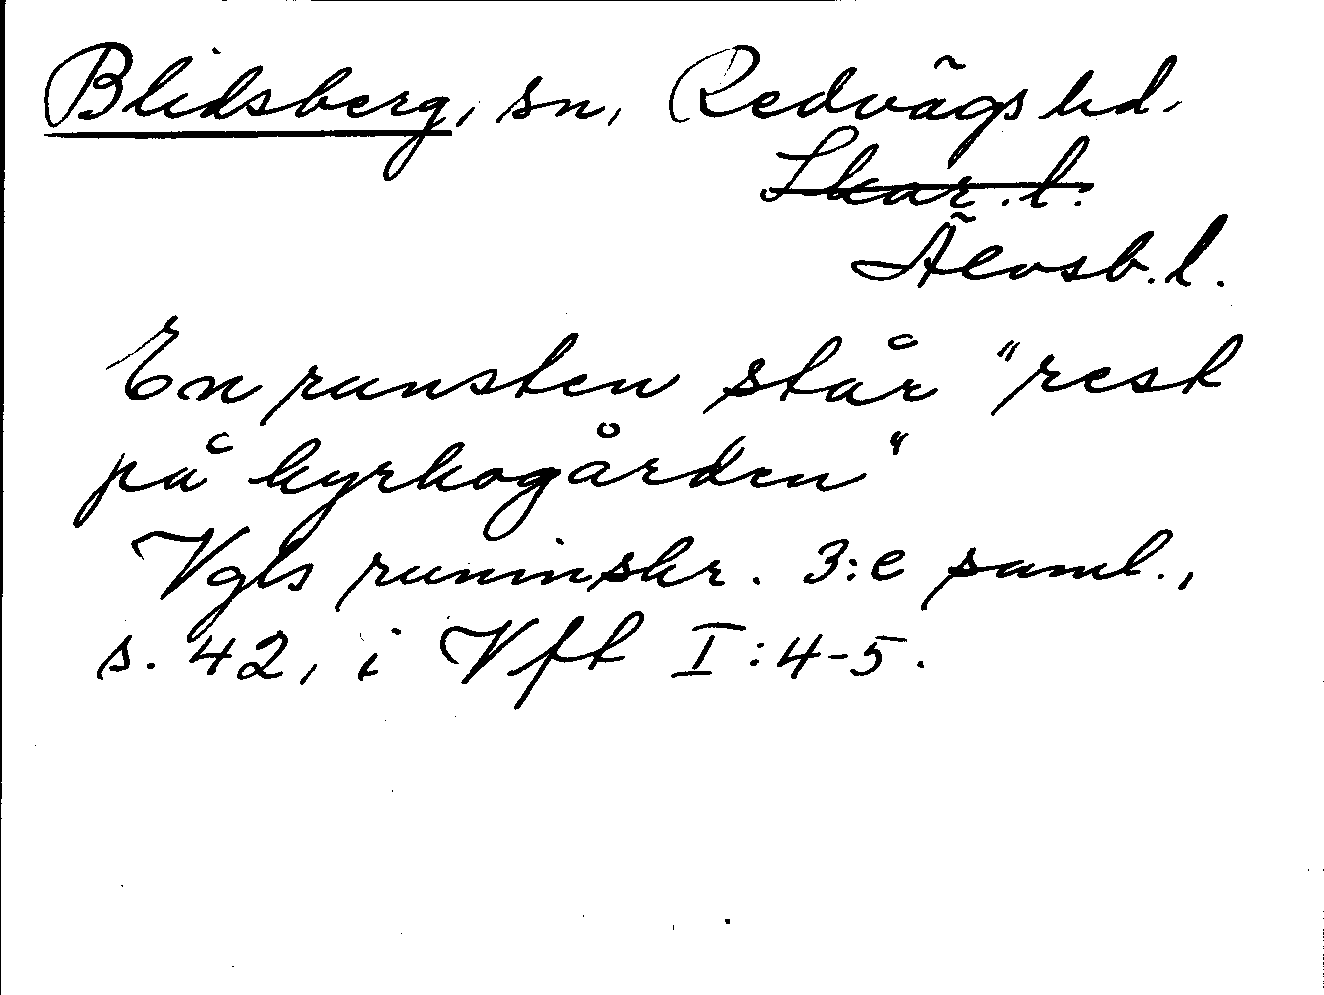 Blidsberg, sn, Redvägs hd.
Skar. l.
Älvsb. l.
En runsten står "rest
på kyrkogården"
Vgls runinskr. 3:e saml.,
s. 42, i Vft I:4-5.